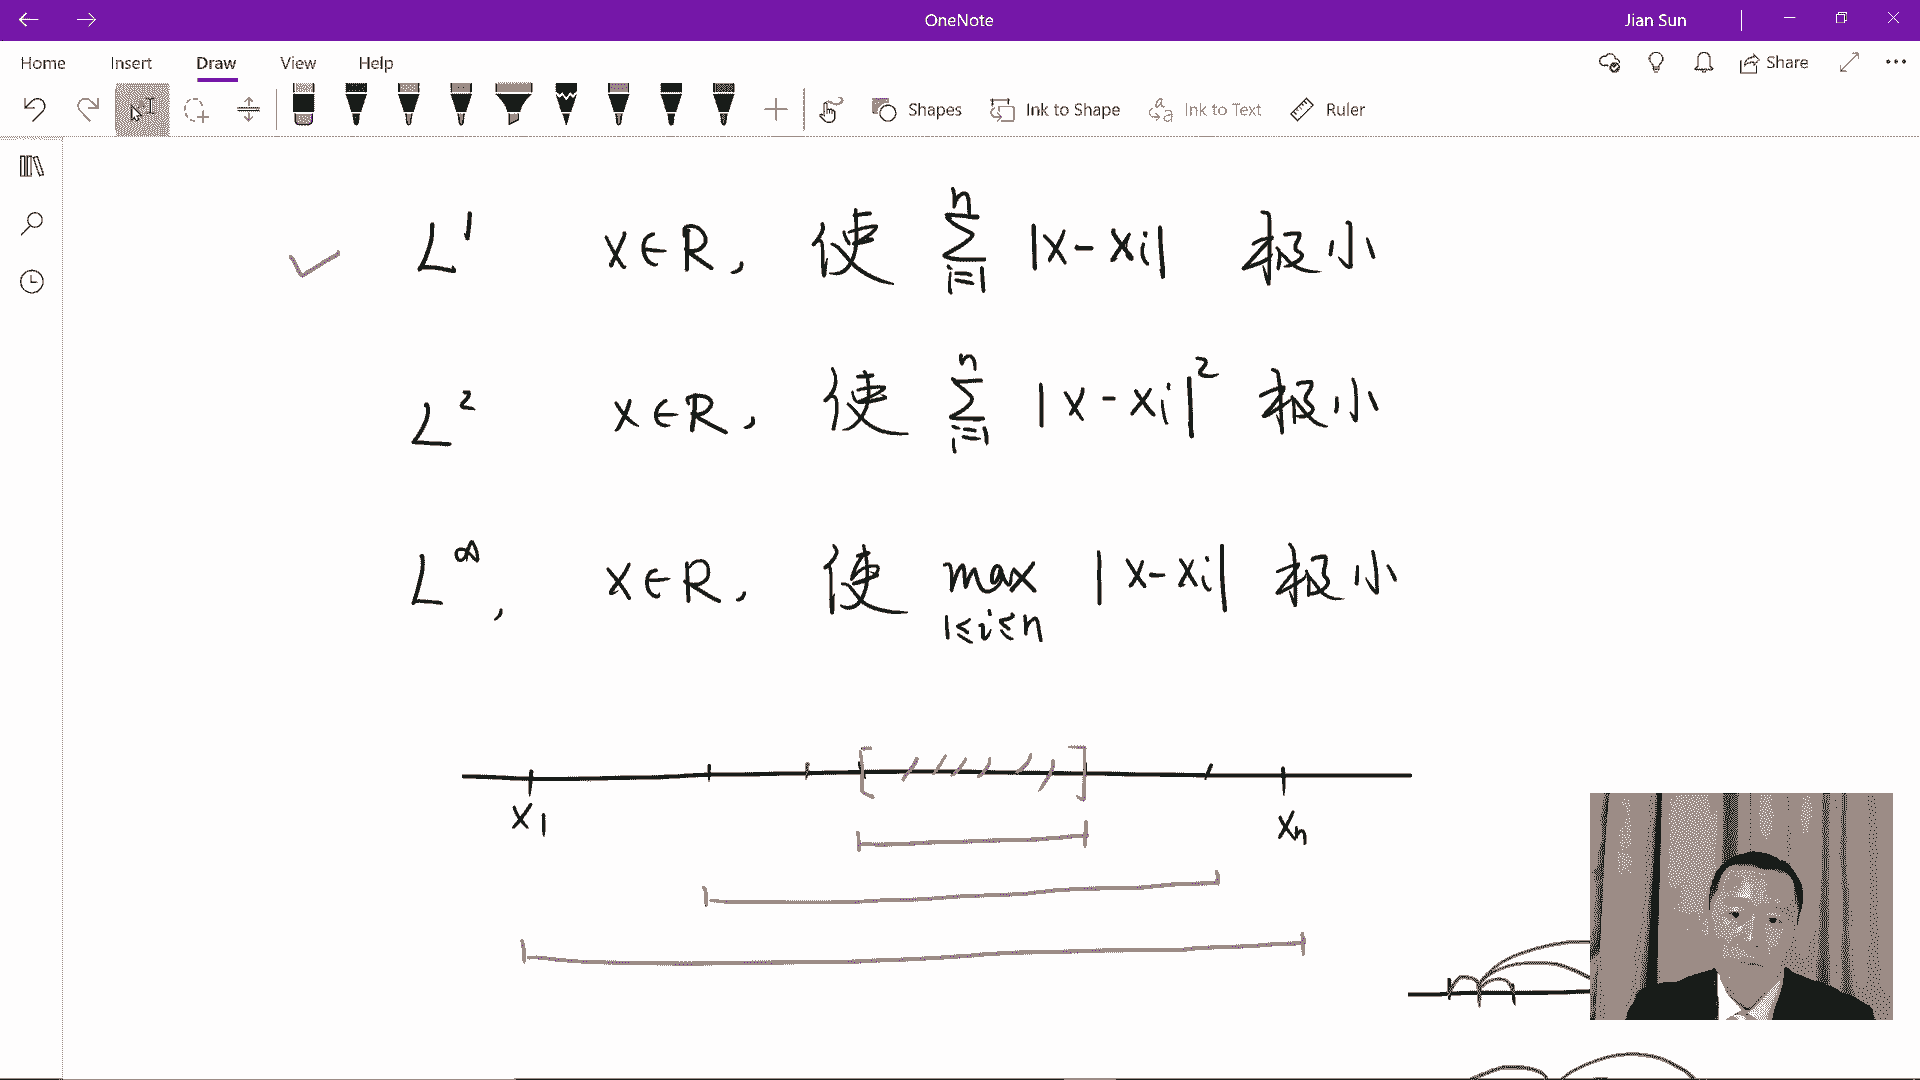 OneNote
Jian Sun
Home Insert Draw View Help
Share
Shapes Ink to Shape Ink to Text Ruler
L¹ x∈R, 使 ∑ⁿᵢ₌₁ |x-xi| 极小
L² x∈R, 使 ∑ⁿᵢ₌₁ |x-xi|² 极小
L^∞, x∈R, 使 max |x-xi| 极小
1≤i≤n
x₁ xₙ